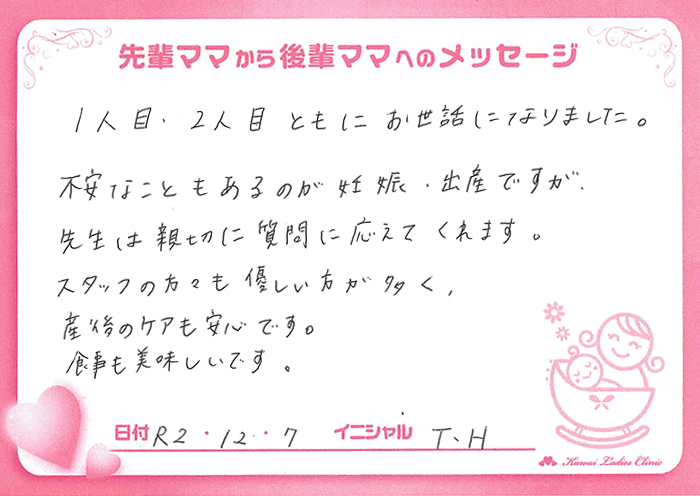 先輩ママから後輩ママへのメッセージ
1人目・2人目 ともに お世話になりました。
不安なこともあるのが 妊娠・出産ですが、
先生は 親切に 質問に 応えて くれます。
スタッフの方々も 優しい 方が 多く、
産後のケアも 安心です。
食事も 美味しいです。
日付 R2・12・7 イニシャル T、H
Kawai Ladies Clinic